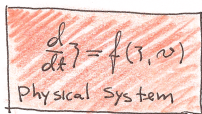 d/dt ξ = f(ξ, w)
Physical System